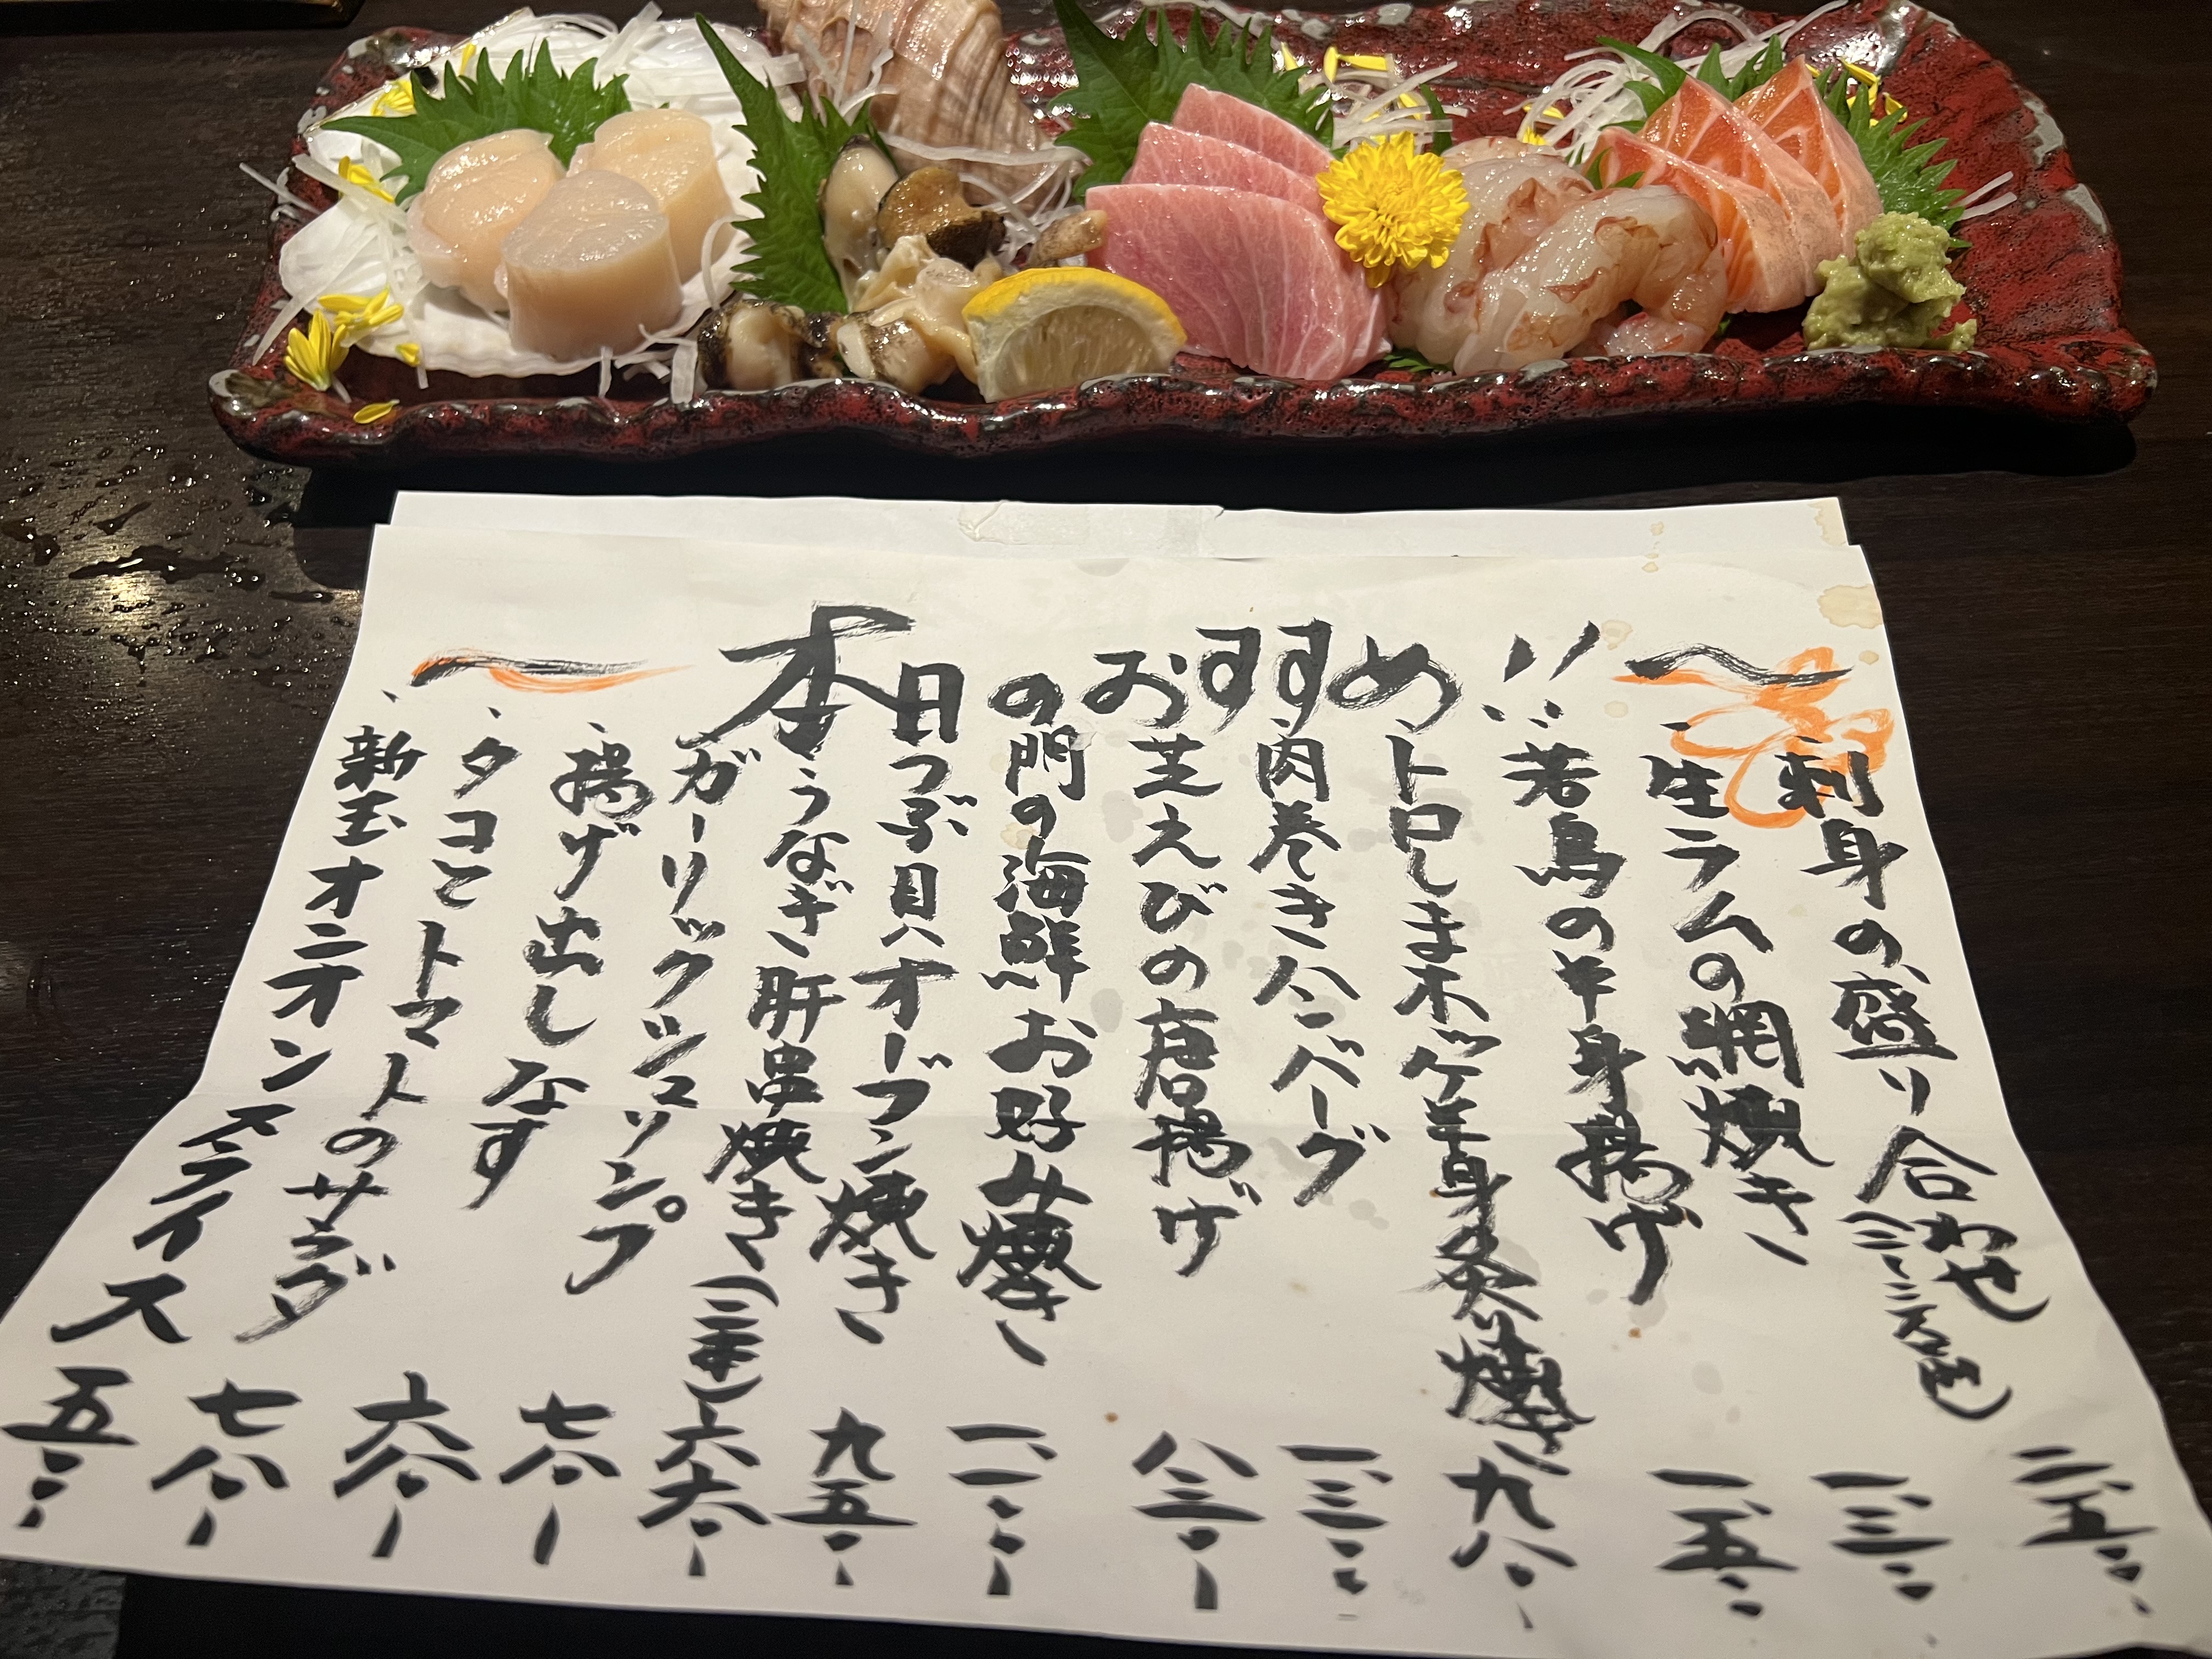 本日のおすすめ!!
刺身の盛り合わせ
二、五〇〇
生ラムの網焼き
一、三〇〇
若鳥の半身揚げ
一、五〇〇
トロしまホッケ半身の炙り焼き
九八〇
肉巻きハンバーグ
一、三〇〇
芝えびの唐揚げ
八三〇
の門の海鮮お好み焼き
一一〇〇
つぶ貝オーブン焼き
九五〇
うなぎ肝串焼き(二本)
六六〇
ガーリックシュリンプ
七八〇
揚げ出しなす
六八〇
タコとトマトのサラダ
七八〇
新玉オニオンスライス
五〇〇